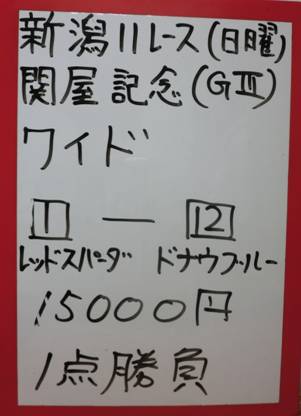 新潟11レース(日曜)
関屋記念(GⅢ)
ワイド
1 — 12
レッドスパーダ ドナウブルー
15000円
1点勝負